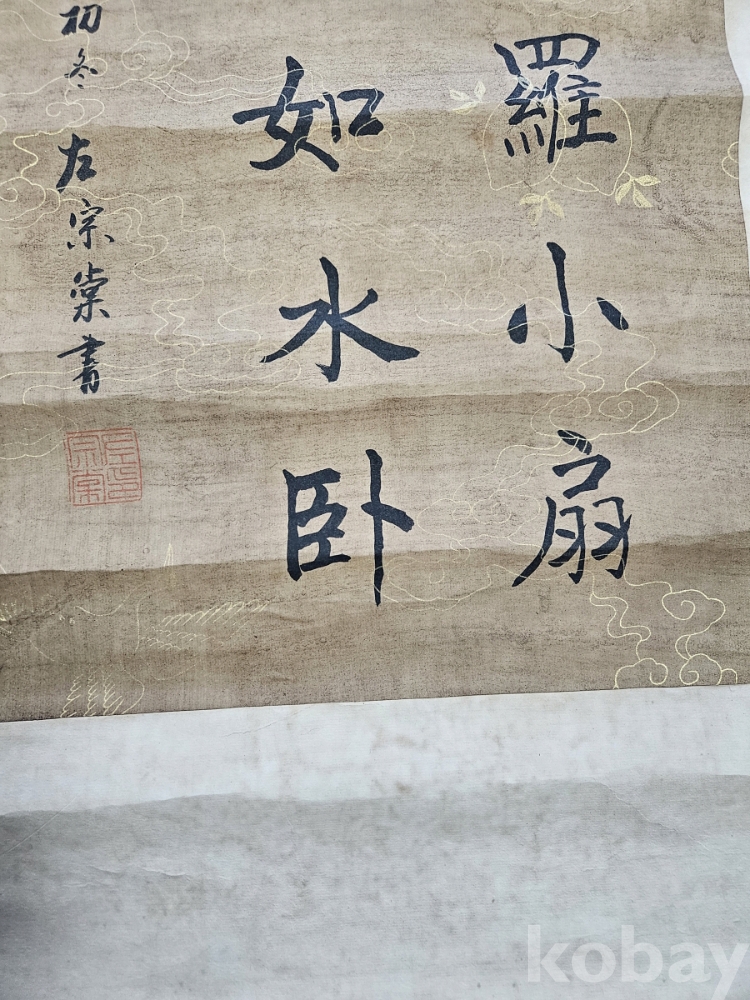 羅小扇
如水卧
初冬 左宗棠書
kobay